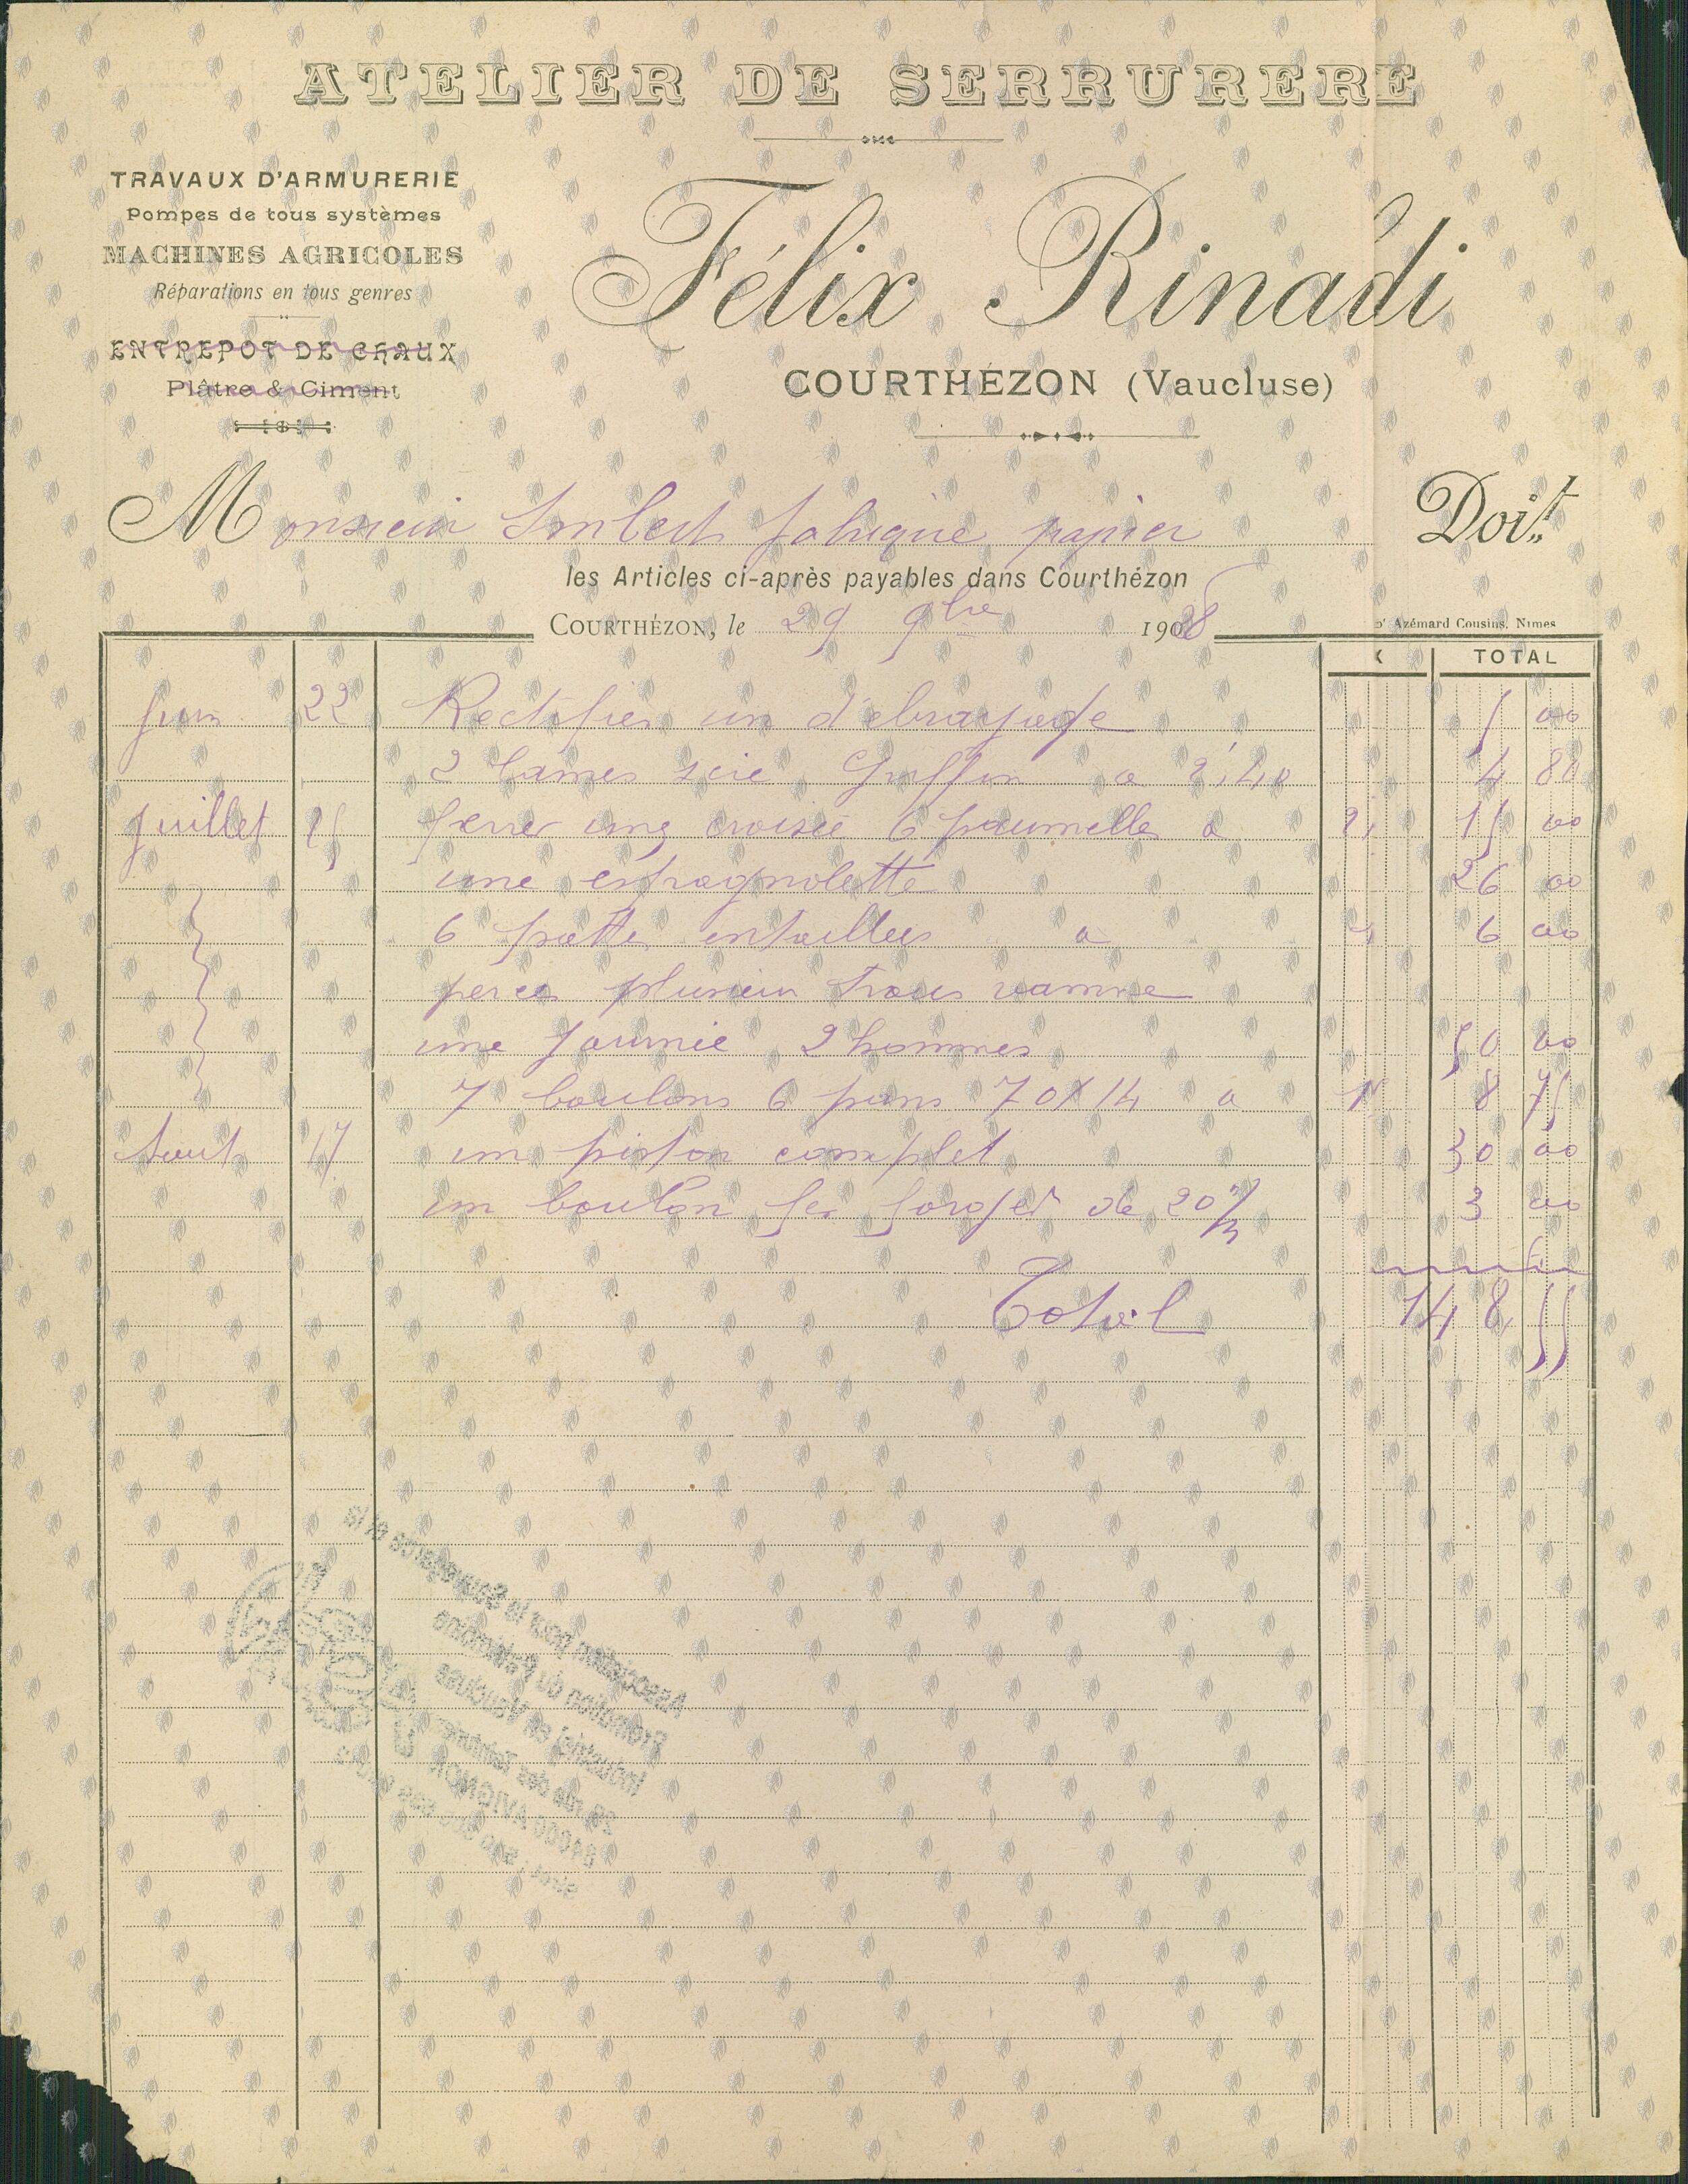 ATELIER DE SERRURERE
TRAVAUX D'ARMURERIE
Pompes de tous systèmes
MACHINES AGRICOLES
Réparations en tous genres
ENTREPOT DE CHAUX
Plâtre & Ciment
Félix Rinadi
COURTHÉZON (Vaucluse)
Monsieur Imbert fabrique papier Doit
les Articles ci-après payables dans Courthézon
COURTHÉZON, le 29 9bre 1928
Azémard Cousins, Nimes
X TOTAL
Juin 22 Rectifier un debrayage 5 00
2 lames scie Griffon a 2,40 4 80
Juillet 25 ferrer une croisée 6 paumelles a 2, 15 00
une espagnolette 26 00
6 patte entaillées a 6 00
percer plusieur trous vanne
une journée 2 hommes 50 00
7 boulons 6 pans 70X14 a 8 75
Aout 17 un piston complet 30 00
un boulon fer forger de 20 m/m 3 00
Total 148 55
Association pour la Sauvegarde et la
Promotion du Patrimoine
Industriel en Vaucluse
rue des Teinturiers
84000 AVIGNON